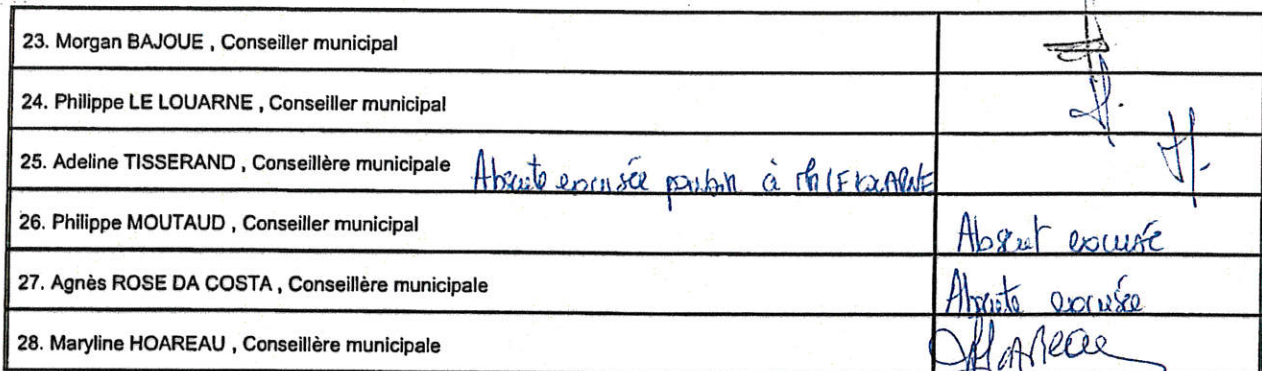 23. Morgan BAJOUE , Conseiller municipal
24. Philippe LE LOUARNE , Conseiller municipal
25. Adeline TISSERAND , Conseillère municipale Absente excusée pouvoir à M LE LOUARNE
26. Philippe MOUTAUD , Conseiller municipal Absent excusé
27. Agnès ROSE DA COSTA , Conseillère municipale Absente excusée
28. Maryline HOAREAU , Conseillère municipale Hoareau